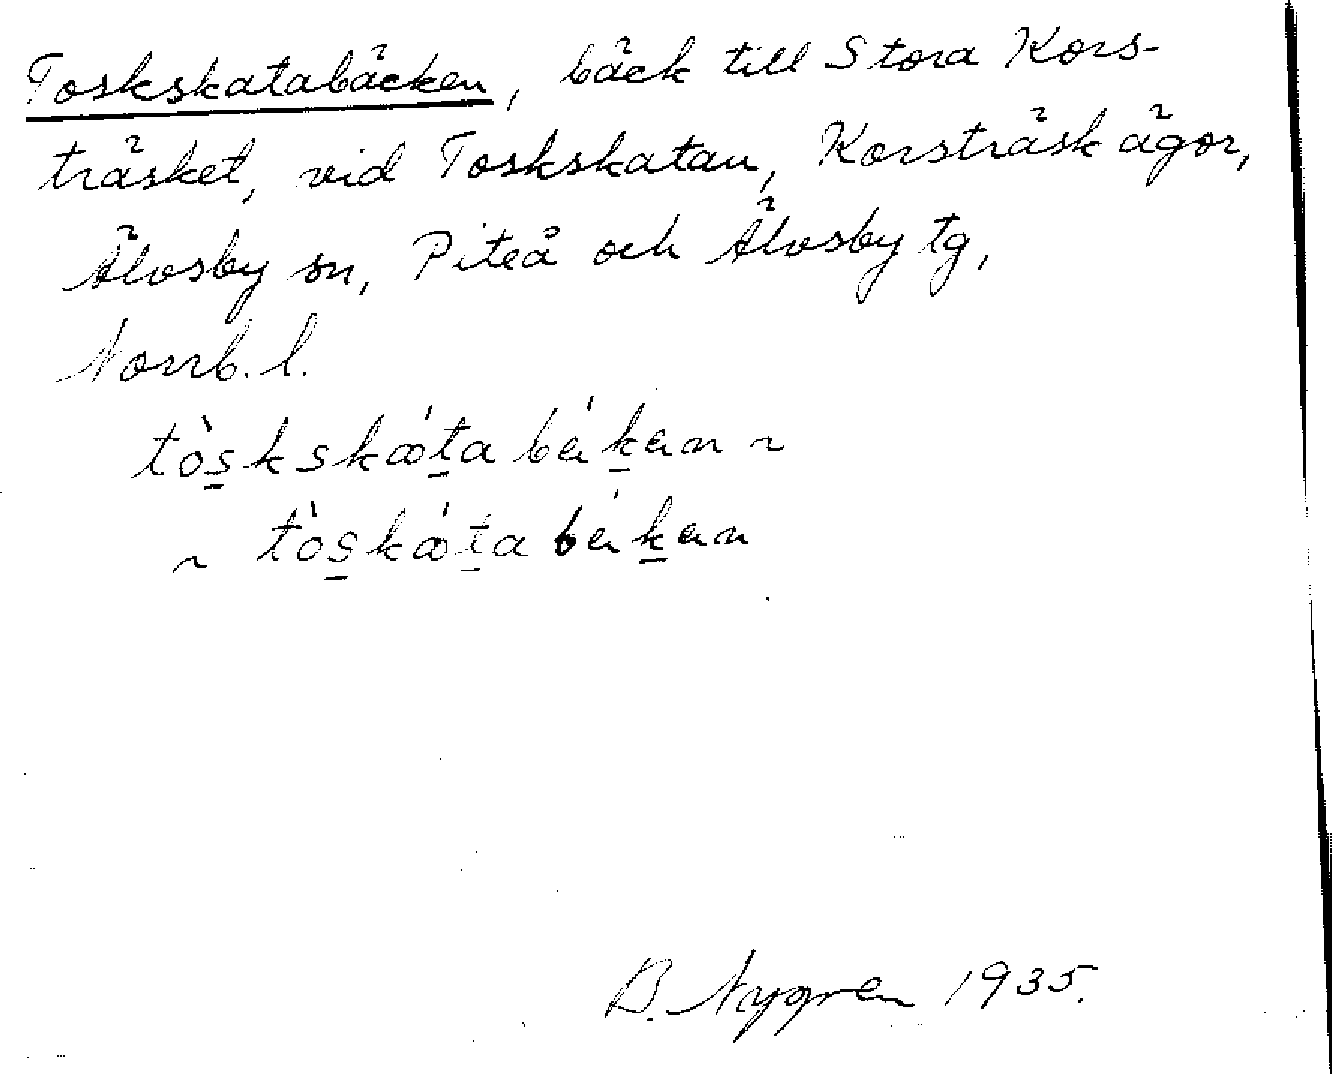 Toskskatabäcken, bäck till Stora Kors-
träsket, vid Toskskatan, Korsträsk ägor,
Älvsby sn, Piteå och Älvsby tg,
Norrb. l.
tòs̱kskǽṯabéḵen ~
~ tòs̱kǽṯabéḵen
B. Nygren 1935.